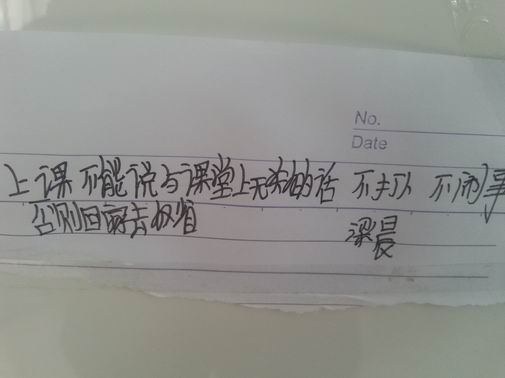 No.
Date
上课不能说与课堂上无关的话 不打趴 不闹事
否则回家去反省
梁晨